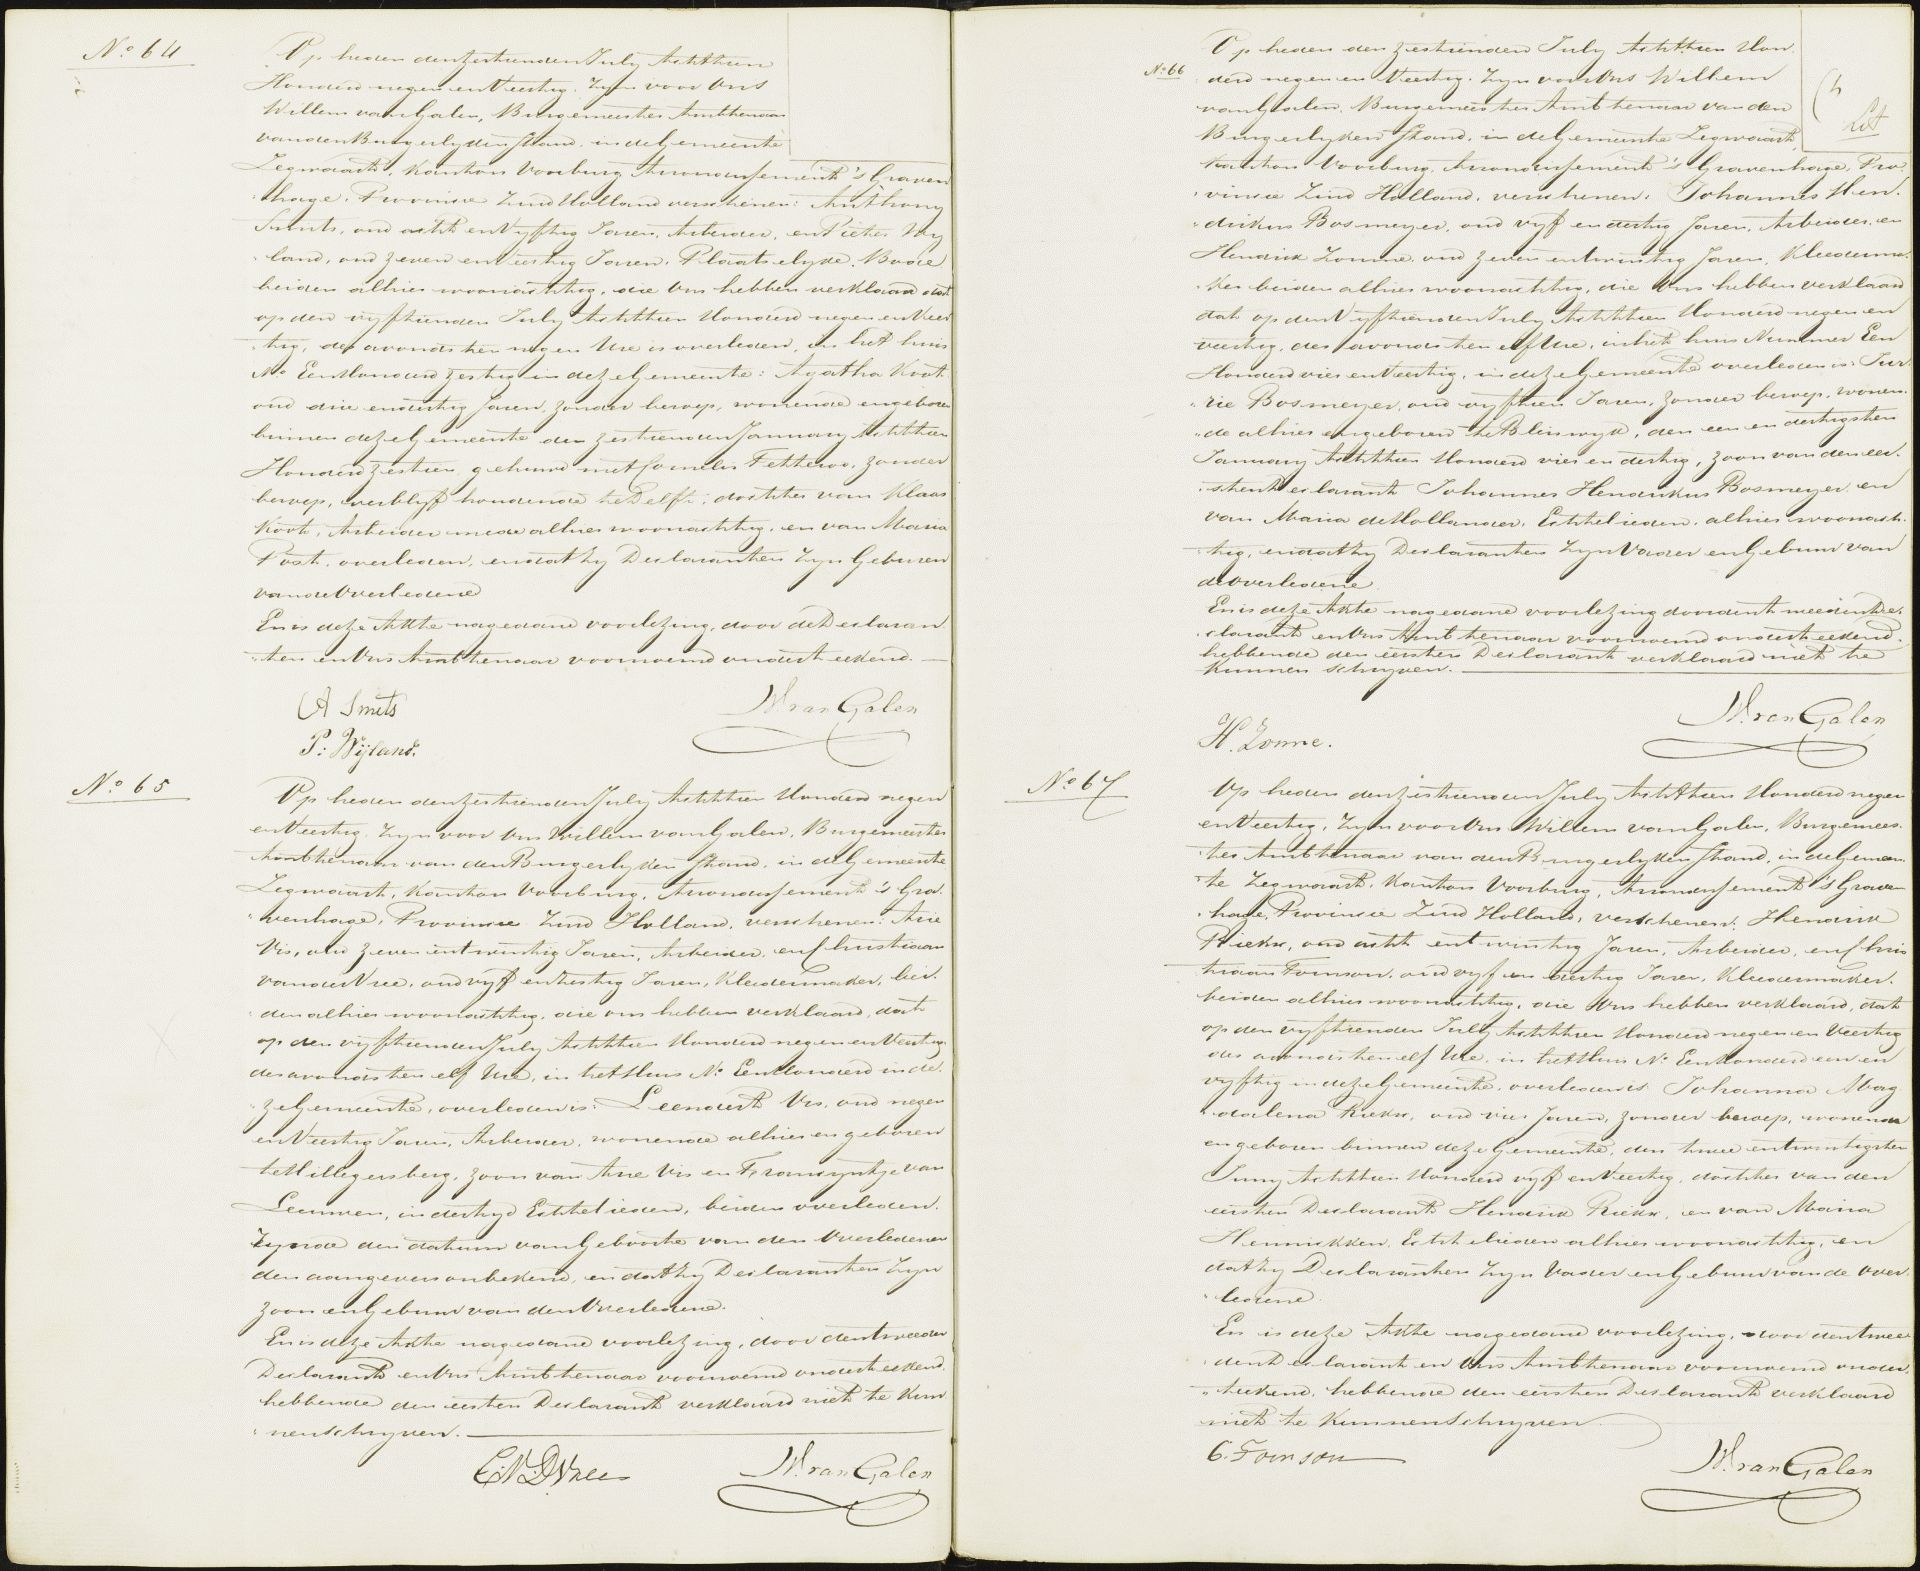 No 64
Op heden den zestienden July Achttien
Honderd negen en Veertig, Zyn voor Ons
Willem van Galen, Burgemeester Ambtenaar
van den Burgerlyken Stand, in de Gemeente
Zegwaart, Kanton Voorburg Arrondissement 's Graven
"hage, Provincie Zuid Holland verschenen: Anthony
Smits, oud acht en Vyftig Jaren, Arbeider, en Pieter Wy
"land, oud zeven en Veertig Jaren, Plaatselyke Bode
beiden alhier woonachtig, die Ons hebben verklaard dat
op den vyftienden July Achttien Honderd negen en Veer
"tig, des avonds ten negen Ure is overleden, in het huis
No Een Honderd zestig in deze Gemeente: Agatha Koot
oud drie en dertig Jaren, zonder beroep, wonende en geboren
binnen deze Gemeente den zestienden January Achttien
Honderd zestien, gehuwd met Cornelis Fetteroo, zonder
beroep, verblyf houdende te Delft; dochter van Klaas
Koot, Arbeider mede alhier woonachtig, en van Maria
Post, overleden, en dat zy Declaranten Zyn Geburen
van de Overledene
En is deze Akte na gedane voorlezing, door de Declaran
"ten en Ons Ambtenaar voornoemd onderteekend.
A Smits
P: Wijland.
W. van Galen
No 65
Op heden den zestienden July Achttien Honderd negen
en Veertig, Zyn voor Ons Willem van Galen, Burgemeester
Ambtenaar van den Burgerlyken Stand, in de Gemeente
Zegwaart, Kanton Voorburg, Arrondissement 's Gra
"venhage, Provincie Zuid Holland, verschenen: Arie
Vis, oud zeven en twintig Jaren, Arbeider, en Christiaan
van der Vree, oud vyf en Zestig Jaren, Kleedermaker, bei
"den alhier woonachtig, die ons hebben verklaard, dat
op den vyftienden July Achttien Honderd negen en Veertig
des avonds ten elf Ure, in het Huis No Een Honderd in de
"ze Gemeente, overleden is: Leendert Vis, oud negen
en Veertig Jaren, Arbeider, wonende alhier en geboren
te Hillegersberg, zoon van Arie Vis en Francyntje van
Leeuwen, in der tyd Echtelieden, beiden overleden.
Zynde den datum van Geboorte van den Overledenen
den aangevers onbekend, en dat zy Declaranten Zyn
zoon en Gebuur van den Overledene.
En is deze Akte na gedane voorlezing, door den tweeden
Declarant en Ons Ambtenaar voornoemd onderteekend.
hebbende den eersten Declarant verklaard niet te kun
"nen Schryven.
W. van Galen
No 66
Op heden den zestienden July Achttien Hon
"derd negen en Veertig, Zyn voor Ons Willem
van Galen, Burgemeester Ambtenaar van den
Burgerlyken Stand, in de Gemeente Zegwaart,
Kanton Voorburg, Arrondissement 's Gravenhage, Pro
"vincie Zuid Holland, verschenen: Johannes Hen
"drikus Bosmeyer, oud vyf en dertig Jaren, Arbeider, en
Hendrik Zonne, oud zeven en twintig Jaren, Kleederma
"ker beiden alhier woonachtig, die Ons hebben verklaard
dat op den Vyftienden July Achttien Honderd negen en
veertig, des avonds ten elf Ure, in het huis Nummer Een
Honderd vier en Veertig, in deze Gemeente overleden is: Jur
"rie Bosmeyer, oud vyftien Jaren, zonder beroep, wonen
"de alhier en geboren te Bleiswyk, den een en dertigsten
January Achttien Honderd vier en dertig, zoon van den eer
"sten Declarant Johannes Hendrikus Bosmeyer en
van Maria de Hollander, Echtelieden, alhier woonach
"tig, en dat zy Declaranten Zyn Vader en Gebuur van
de Overledene
En is deze Akte na gedane voorlezing door den tweeden De
"clarant en Ons Ambtenaar voornoemd onderteekend
hebbende den eersten Declarant verklaard niet te
kunnen schryven.
H. Zonne.
W. van Galen
No 67
Op heden den zestienden July Achttien Honderd negen
en Veertig, Zyn voor Ons Willem van Galen, Burgemees
"ter Ambtenaar van den Burgerlyken Stand, in de Gemeen
"te Zegwaart, Kanton Voorburg, Arrondissement 's Graven
"hage, Provincie Zuid Holland, verschenen: Hendrik
Riekx, oud acht en twintig Jaren, Arbeider, en Chris
"tiaan Foinson, oud vyf en dertig Jaren, Kleedermaker.
beiden alhier woonachtig, die Ons hebben verklaard, dat
op den vyftienden July Achttien Honderd negen en Veertig
des avonds ten elf Ure, in het Huis No Een Honderd een en
vyftig in deze Gemeente, overleden is Johanna Mag
"dalena Riekx, oud vier Jaren, zonder beroep, wonende
en geboren binnen deze Gemeente, den twee en twintigsten
Juny Achttien Honderd vyf en Veertig, dochter van den
eersten Declarant Hendrik Riekx, en van Maria
Hennikken, Echtelieden alhier woonachtig, en
dat zy Declaranten Zyn Vader en Gebuur van de Over
"ledene.
En is deze Akte na gedane voorlezing, door den twee
"den Declarant en Ons Ambtenaar voornoemd onder
"teekend, hebbende den eersten Declarant verklaard
niet te kunnen Schryven.
C. Foinson
W. van Galen